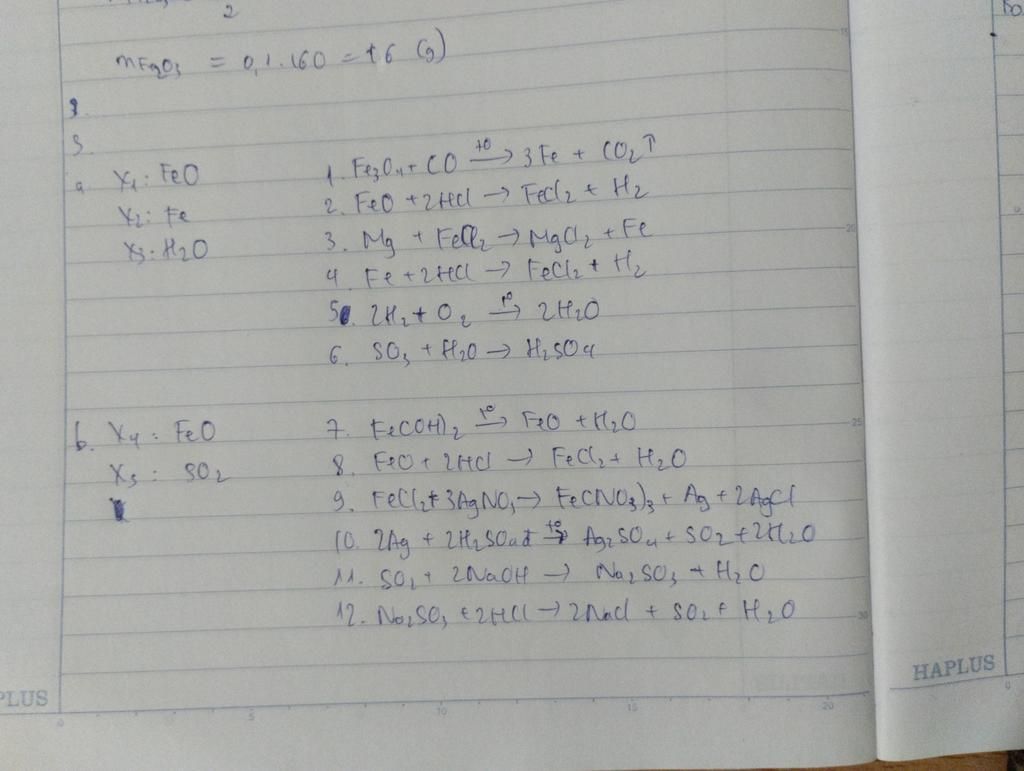 2
mFe2O3 = 0,1.160 = 16 (g)
3.
a X1: FeO 1. Fe3O4 + CO →(t°) 3Fe + CO2↑
X2: Fe 2. FeO + 2HCl → FeCl2 + H2
X3: H2O 3. Mg + FeCl2 → MgCl2 + Fe
4. Fe + 2HCl → FeCl2 + H2
5. 2H2 + O2 →(t°) 2H2O
6. SO3 + H2O → H2SO4
b. X4: FeO 7. Fe(OH)2 →(t°) FeO + H2O
X5: SO2 8. FeO + 2HCl → FeCl2 + H2O
9. FeCl2 + 3AgNO3 → Fe(NO3)3 + Ag + 2AgCl
10. 2Ag + 2H2SO4đ →(t°) Ag2SO4 + SO2 + 2H2O
11. SO2 + 2NaOH → Na2SO3 + H2O
12. Na2SO3 + 2HCl → 2NaCl + SO2 + H2O
HAPLUS
PLUS
0 5 10 15 20